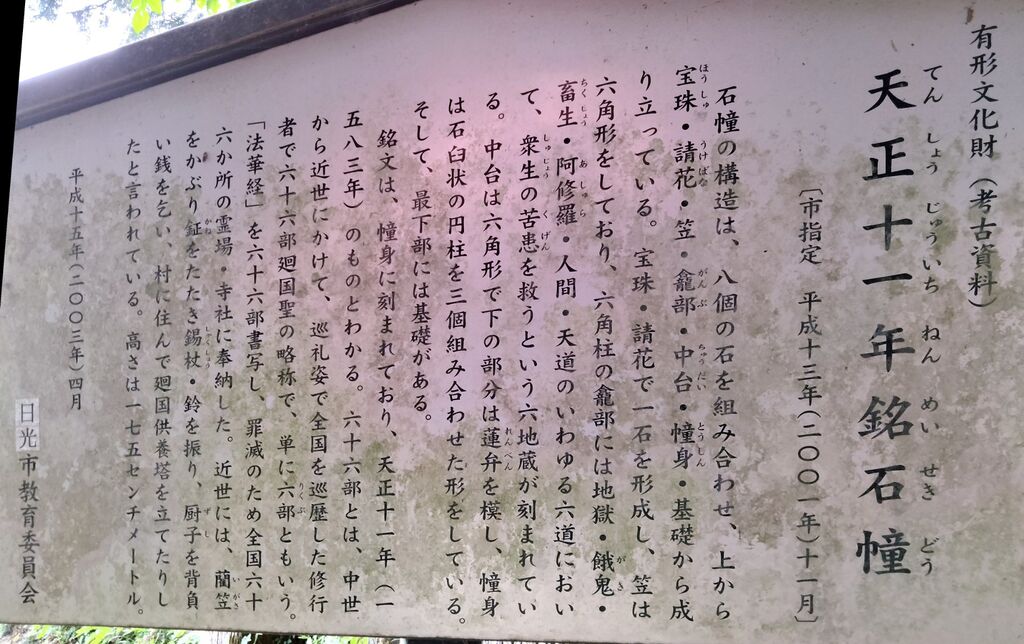 有形文化財（考古資料）
天正十一年銘石幢
てん しょう じゅういち ねん めい せき どう
〔市指定　平成十三年（二〇〇一年）十一月〕
石幢の構造は、八個の石を組み合わせ、上から
宝珠・請花・笠・龕部・中台・幢身・基礎から成
ほうしゅ うけばな がんぶ ちゅうだい とうしん
り立っている。宝珠・請花で一石を形成し、笠は
六角形をしており、六角柱の龕部には地獄・餓鬼・
がき
畜生・阿修羅・人間・天道のいわゆる六道におい
ちくしょう あしゅら
て、衆生の苦患を救うという六地蔵が刻まれてい
しゅじょう くげん
る。中台は六角形で下の部分は蓮弁を模し、幢身
れんべん
は石臼状の円柱を三個組み合わせた形をしている。
そして、最下部には基礎がある。
銘文は、幢身に刻まれており、天正十一年（一
五八三年）のものとわかる。六十六部とは、中世
から近世にかけて、巡礼姿で全国を巡歴した修行
者で六十六部廻国聖の略称で、単に六部ともいう。
りくぶ
「法華経」を六十六部書写し、罪滅のため全国六十
六か所の霊場・寺社に奉納した。近世には、藺笠
いがさ
をかぶり鉦をたたき錫杖・鈴を振り、厨子を背負
かね しゃくじょう ずし
い銭を乞い、村に住んで廻国供養塔を立てたりし
たと言われている。高さは一七五センチメートル。
平成十五年（二〇〇三年）四月
日光市教育委員会